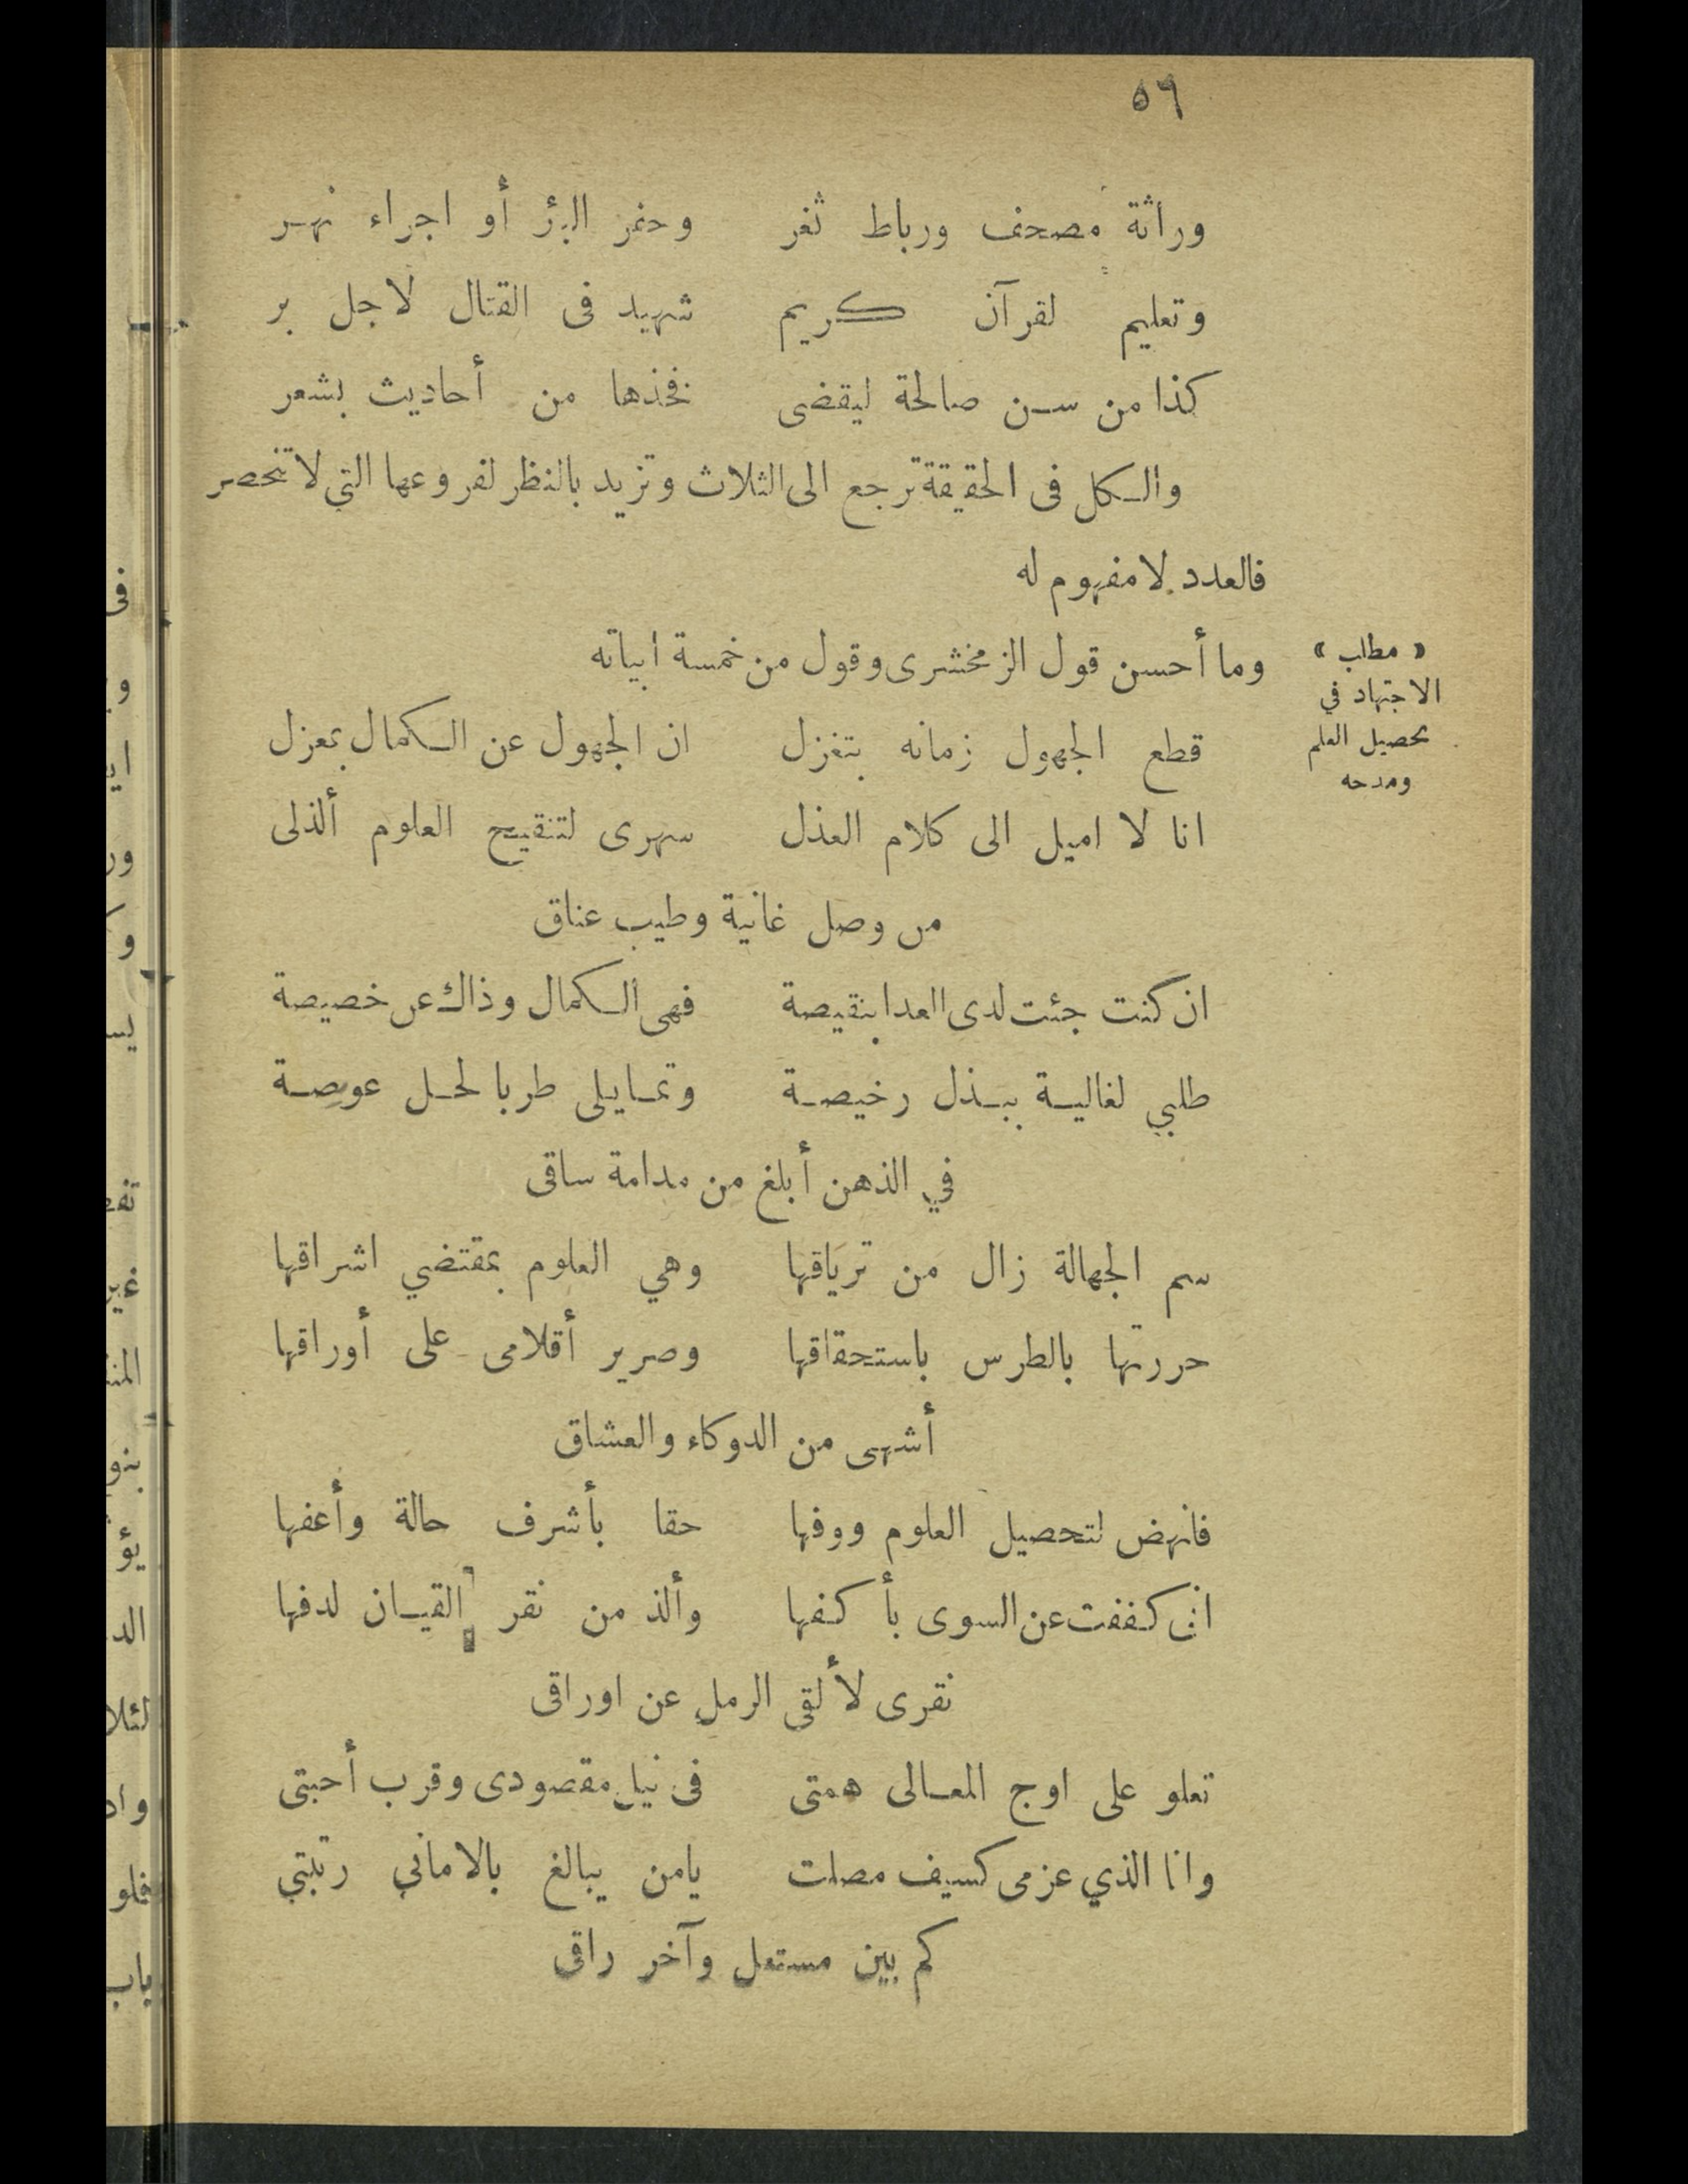 ٥٩
وراثة مصحف ورباط ثغر وحفر البئر أو اجراء نهر
وتعليم لقرآن كريم شهيد فى القتال لاجل بر
كذا من سن صالحة ليقضى فخذها من أحاديث بشعر
والكل فى الحقيقة ترجع الى الثلاث وتزيد بالنظر لفروعها التى لا تنحصر
فالعدد لا مفهوم له
وما أحسن قول الزمخشرى وقول من خمسة ابياته
« مطلب »
الاجتهاد في
تحصيل العلم
ومدحه
قطع الجهول زمانه بتغزل ان الجهول عن الكمال بمعزل
انا لا اميل الى كلام العذل سهرى لتنقيح العلوم ألذلى
من وصل غانية وطيب عناق
ان كنت جئت لدى العدا بنقيصة فهى الكمال وذاك عن خصيصة
طلبي لغالية ببذل رخيصة وتمايلى طربا لحل عويصة
في الذهن أبلغ من مدامة ساقى
سم الجهالة زال من ترياقها وهي العلوم بمقتضي اشراقها
حررتها بالطرس باستحقاقها وصرير أقلامى على أوراقها
أشهى من الدوكاء والعشاق
فانهض لتحصيل العلوم ووفها حقا بأشرف حالة وأعفها
ان كففت عن السوى بأكفها وألذ من نقر القيان لدفها
نقرى لألقى الرمل عن اوراقى
تعلو على اوج المعالى همتى فى نيل مقصودى وقرب أحبتى
وانا الذي عزمى كسيف مصلت يامن يبالغ بالاماني رتبتي
كم بين مستعل وآخر راقى